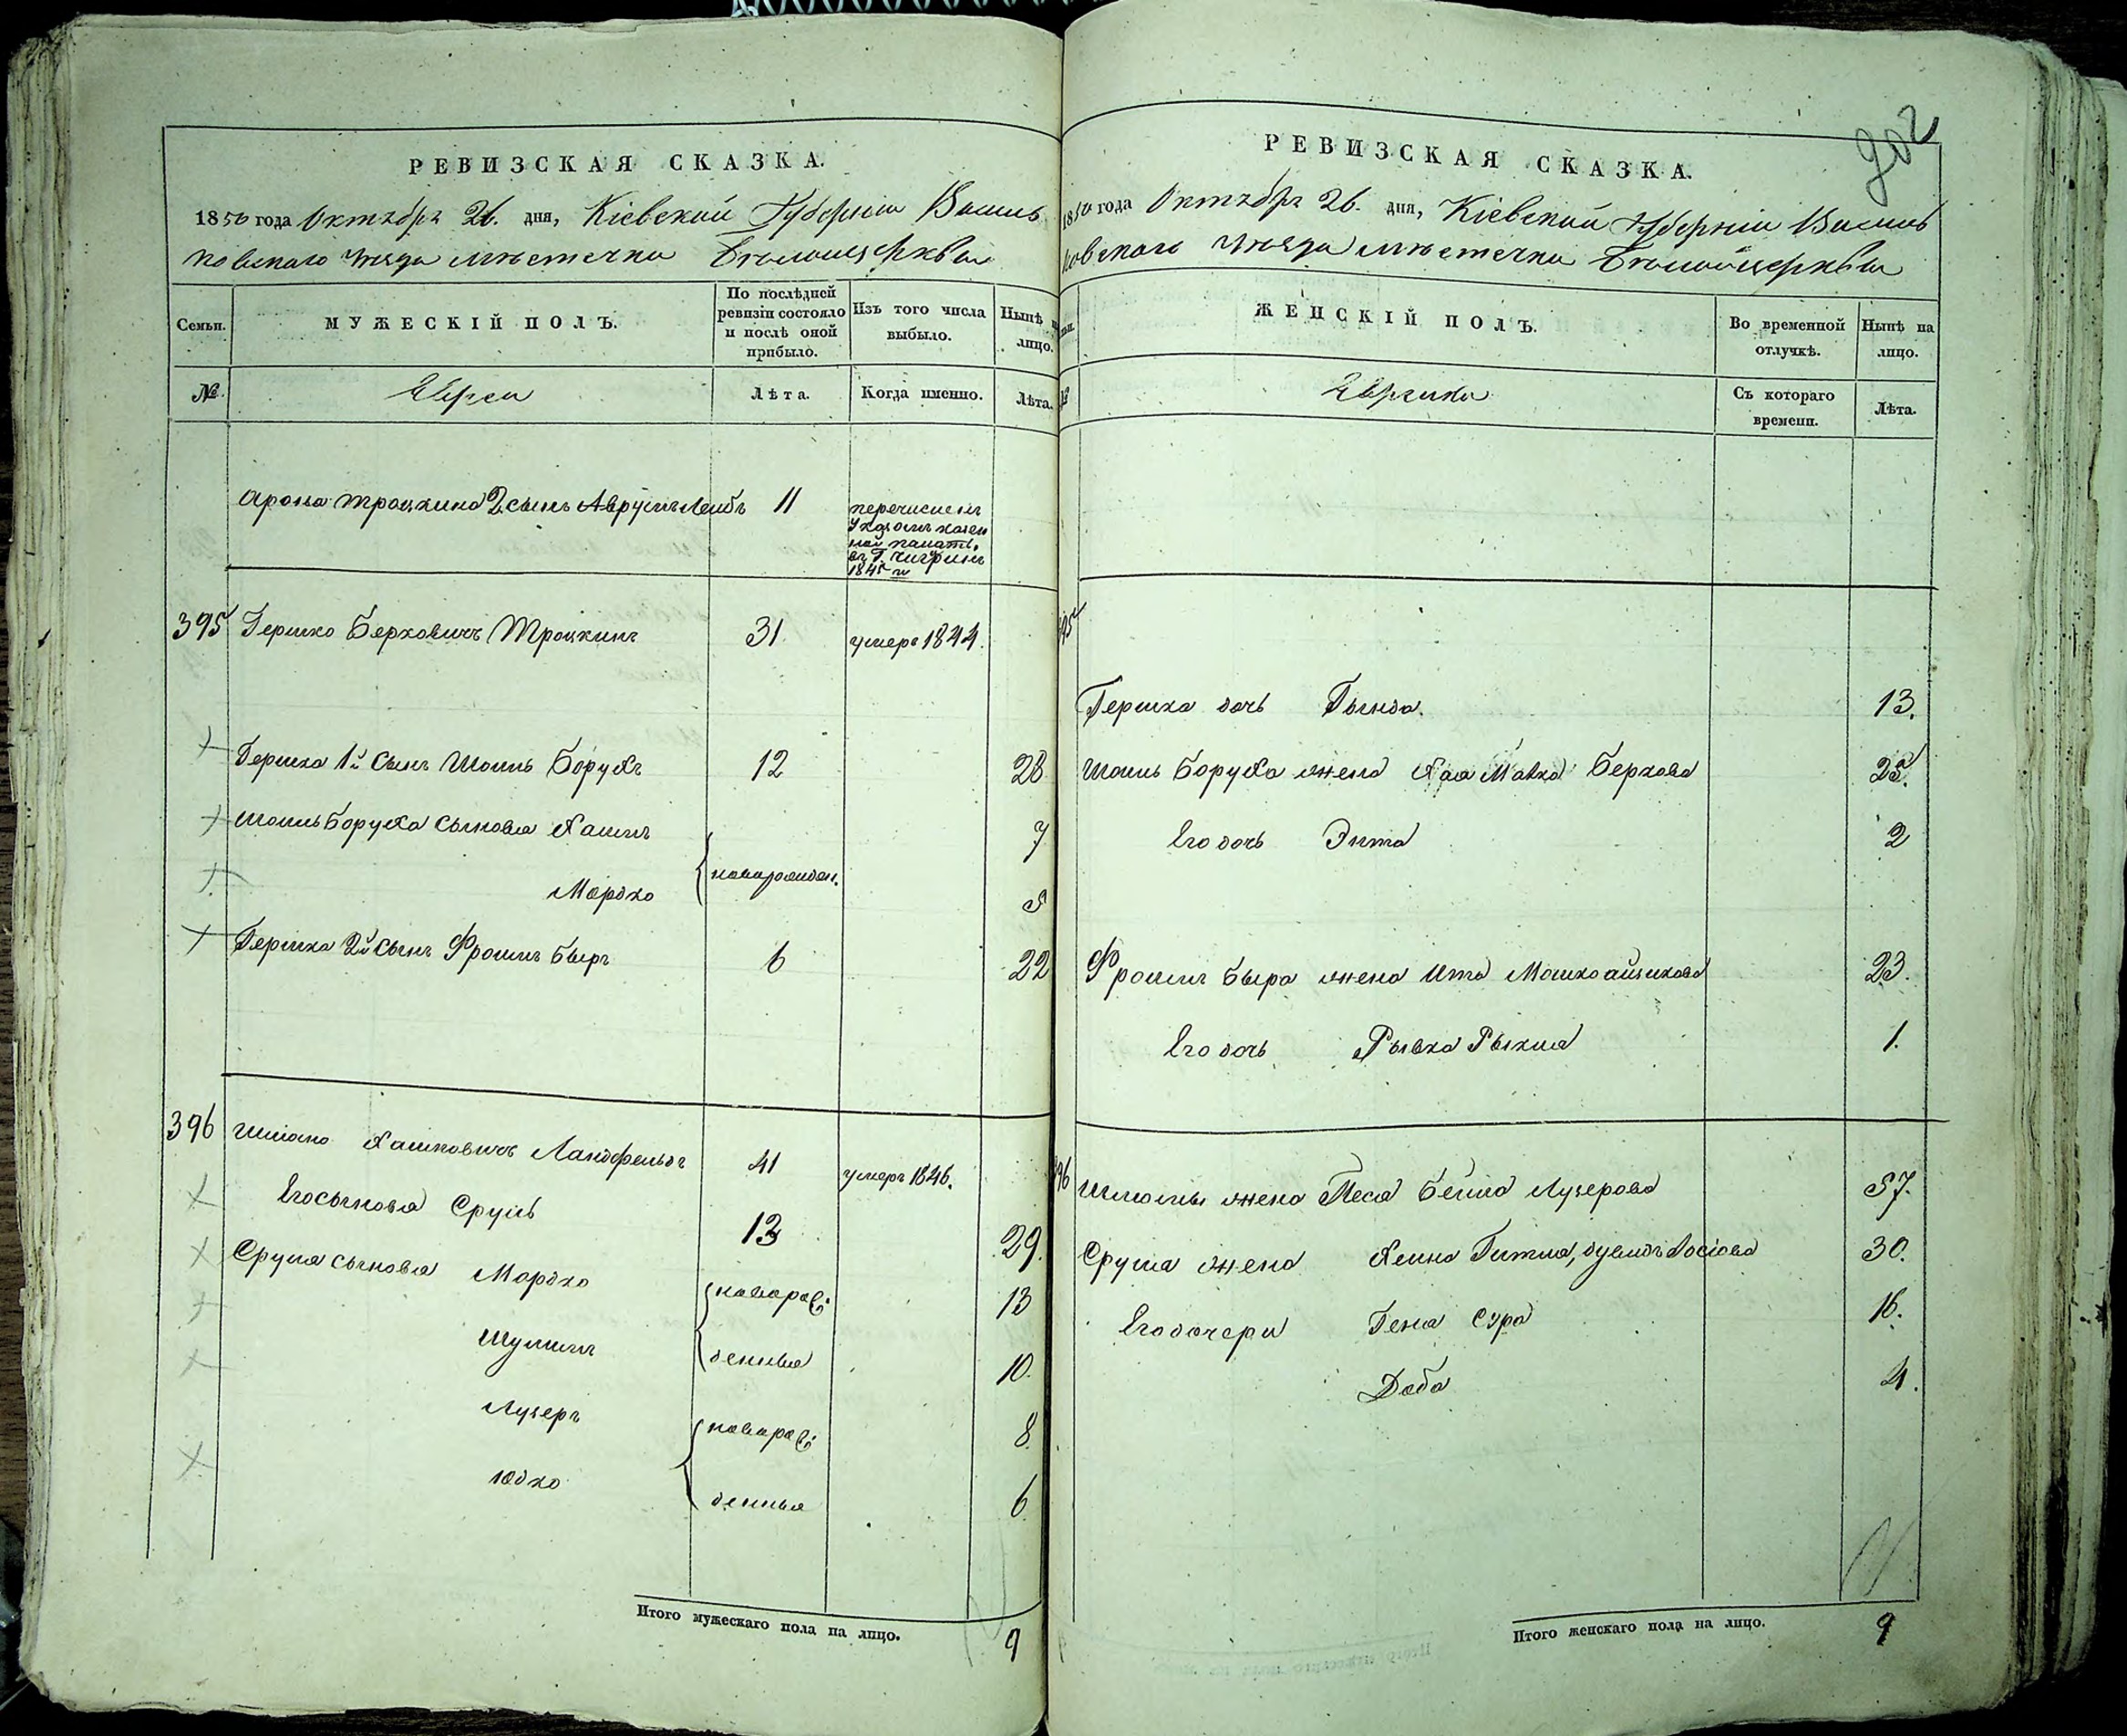 РЕВИЗСКАЯ СКАЗКА.
1850 года Октября 26. дня, Кіевской Губерніи Василь
ковскаго уѣзда мѣстечка Бѣлоцеркви
Семьи.
МУЖЕСКІЙ ПОЛЪ.
По послѣдней
ревизіи состояло
и послѣ оной
прибыло.
Изъ того числа
выбыло.
Нынѣ н
лицо.
№
Евреи
Лѣта.
Когда именно.
Лѣта.
Арона Троцкина 2. сынъ Аврумъ Лейбъ 11
перечисленъ
указомъ казен
ной палаты.
въ Г. Чигринъ
1845 г.
395 Гершко Берковичъ Троцкинъ 31 умеръ 1844.
Гершка 1й сынъ Шоиль Борухъ 12 28
Шоиль Боруха сыновья Хаимъ 7
новорожден.
Мордко 5
Гершка 2й сынъ Фроимъ Беръ 6 22
396 Шліомо Хаимовичъ Ландфельдъ 41 умеръ 1846.
Его сыновья Сруль 13 29.
Сруля сыновья Мордко новоро 13
Шулимъ денныя 10.
Лузеръ новоро 8
Юдко денныя 6
Итого мужескаго пола на лицо. 9
202
РЕВИЗСКАЯ СКАЗКА.
1850 года Октября 26. дня, Кіевской Губерніи Василь
ковскаго уѣзда мѣстечка Бѣлоцеркви
ЖЕНСКІЙ ПОЛЪ.
Во временной
отлучкѣ.
Нынѣ на
лицо.
№
Еврейки
Съ котораго
времени.
Лѣта.
395
Гершка дочь Гинда. 13.
Шоиль Боруха жена Хая Малка Беркова 25.
Его дочь Энта 2
Фроимъ Бера жена Ита Мошко Айзикова 23.
Его дочь Рывка Рыхля 1.
396 Шліомы жена Песя Бейла Лузерова 57.
Сруля жена Хейна Гитля, Дувидъ Іосіова 30.
Его дочери Геня Сура 16.
Доба 4.
Итого женскаго пола на лицо. 9